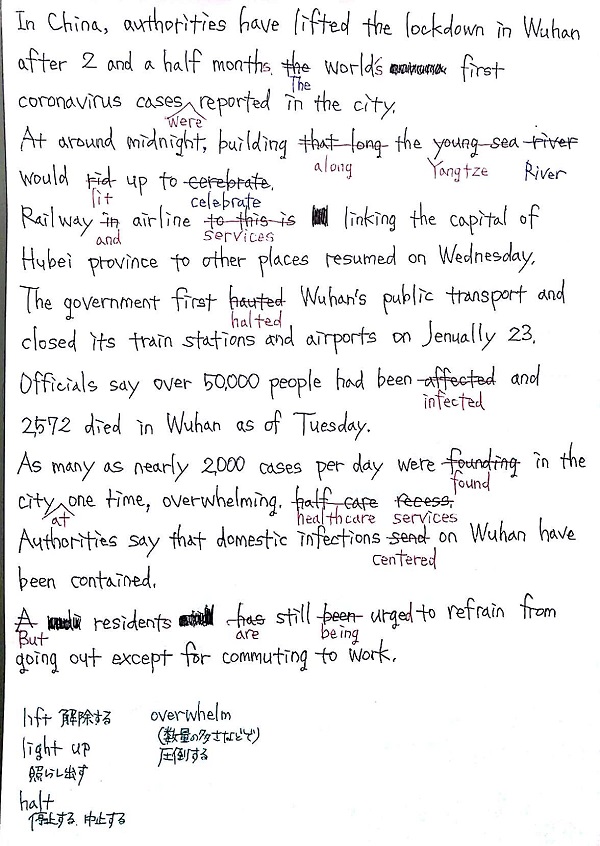 In China, authorities have lifted the lockdown in Wuhan
after 2 and a half months. the world's first
The
coronavirus cases reported in the city.
were
At around midnight, building that long the young sea river
along Yangtze River
would rid up to cerebrate.
lit celebrate
Railway in airline to this is linking the capital of
and services
Hubei province to other places resumed on Wednesday.
The government first hauted Wuhan's public transport and
halted
closed its train stations and airports on Jenually 23.
Officials say over 50,000 people had been affected and
infected
2,572 died in Wuhan as of Tuesday.
As many as nearly 2,000 cases per day were founding in the
found
city one time, overwhelming. half care recess.
at healthcare services
Authorities say that domestic infections send on Wuhan have
centered
been contained.
A residents has still been urged to refrain from
But are being
going out except for commuting to work.
lift 解除する overwhelm
(数量の多さなどで)
light up 圧倒する
照らし出す
halt
停止する、中止する